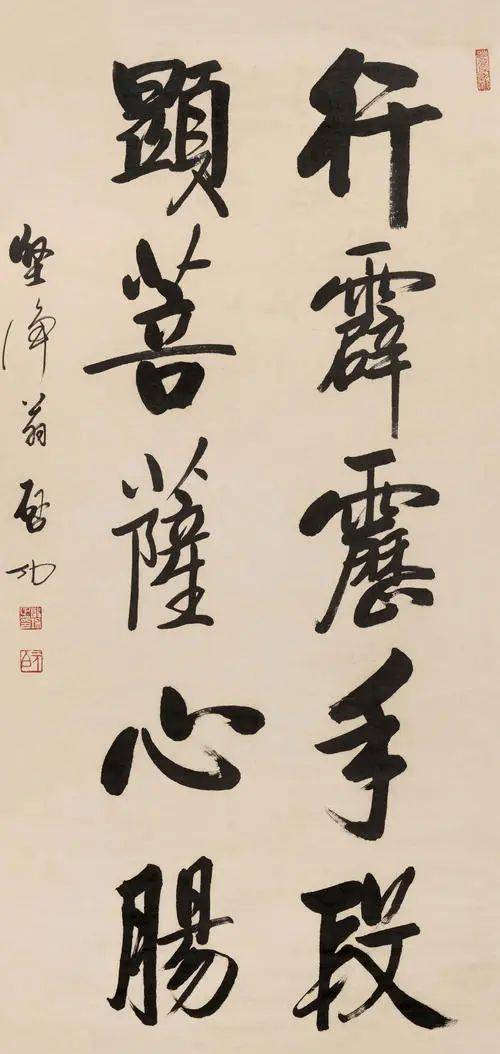 行霹靂手段
顯菩薩心腸
堅淨翁啓功